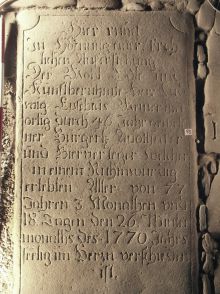 Hier ruhet
zu Hofnung einer Fröh
lichen Auferstehung
Der Wohl Edle und
Kunstberühmte Herr
vang
orlig Burch 46 Jahr
ner Burgerl.
und Bierverleger Welcher
in einem Ruhmwürdig
erlebten Alter von 77
Jahren 3 Monathen und
18 Tagen den 26 Winter
monaths des 1770 Jahrs
seelig im Herrn verschieden
ist.